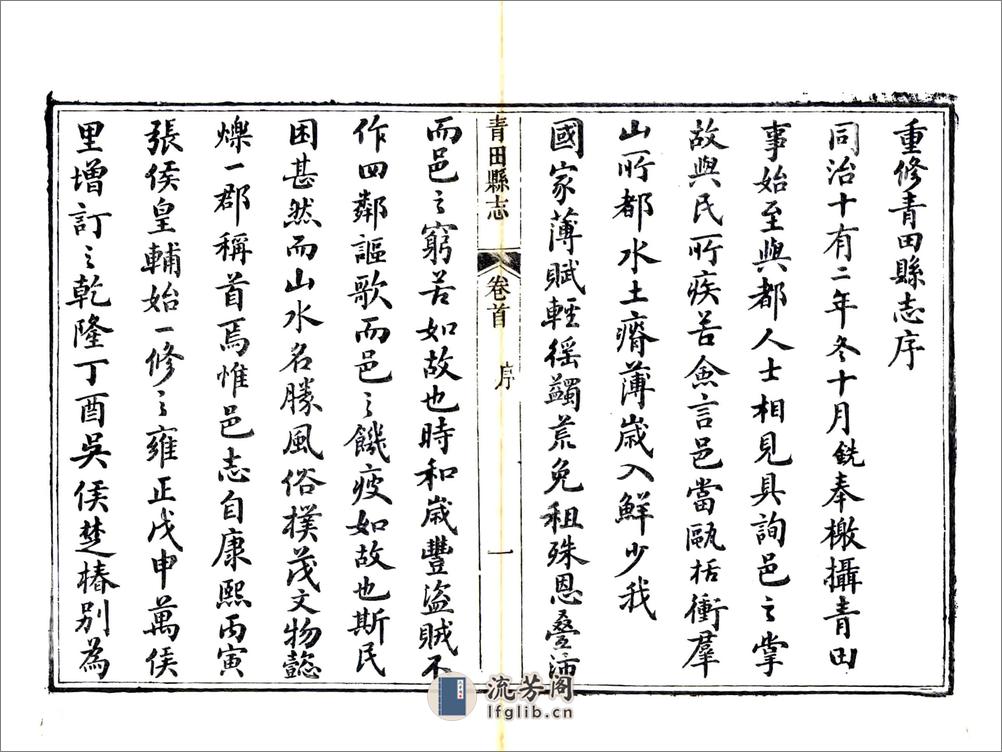 重修青田縣志序
同治十有二年冬十月銑奉檄攝青田
事始至與都人士相見具詢邑之掌
故與民所疾苦僉言邑當甌栝衝羣
山所都水土瘠薄歲入鮮少我
國家薄賦輕徭蠲荒免租殊恩疊沛
青田縣志 卷首 序 一
而邑之窮苦如故也時和歲豐盜賊不
作四鄰謳歌而邑之饑疲如故也斯民
困甚然而山水名勝風俗樸茂文物懿
爍一郡稱首焉惟邑志自康熙丙寅
張侯皇輔始一修之雍正戊申萬侯
里增訂之乾隆丁酉吳侯楚椿別為
流芳阁
lfglib.cn